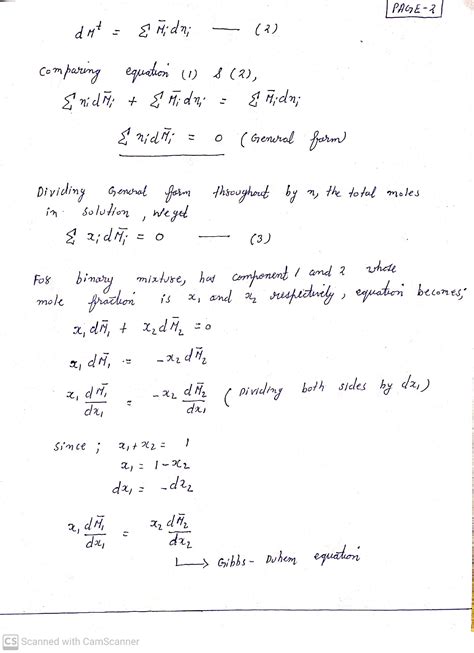 PAGE-2
dM^t = Σ M̄ᵢdnᵢ — (2)
Comparing equation (1) & (2),
Σ nᵢdM̄ᵢ + Σ M̄ᵢdnᵢ = Σ M̄ᵢdnᵢ
Σ nᵢdM̄ᵢ = 0 (General form)
Dividing General form throughout by n, the total moles
in solution, we get
Σ xᵢdM̄ᵢ = 0 — (3)
For binary mixture, has component 1 and 2 whose
mole fraction is x₁ and x₂ respectively, equation becomes;
x₁dM̄₁ + x₂dM̄₂ = 0
x₁dM̄₁ = -x₂dM̄₂
x₁ dM̄₁/dx₁ = -x₂ dM̄₂/dx₁ (Dividing both sides by dx₁)
Since; x₁+x₂ = 1
x₁ = 1-x₂
dx₁ = -dx₂
x₁ dM̄₁/dx₁ = x₂ dM̄₂/dx₂
↳ Gibbs-Duhem equation
CS Scanned with CamScanner